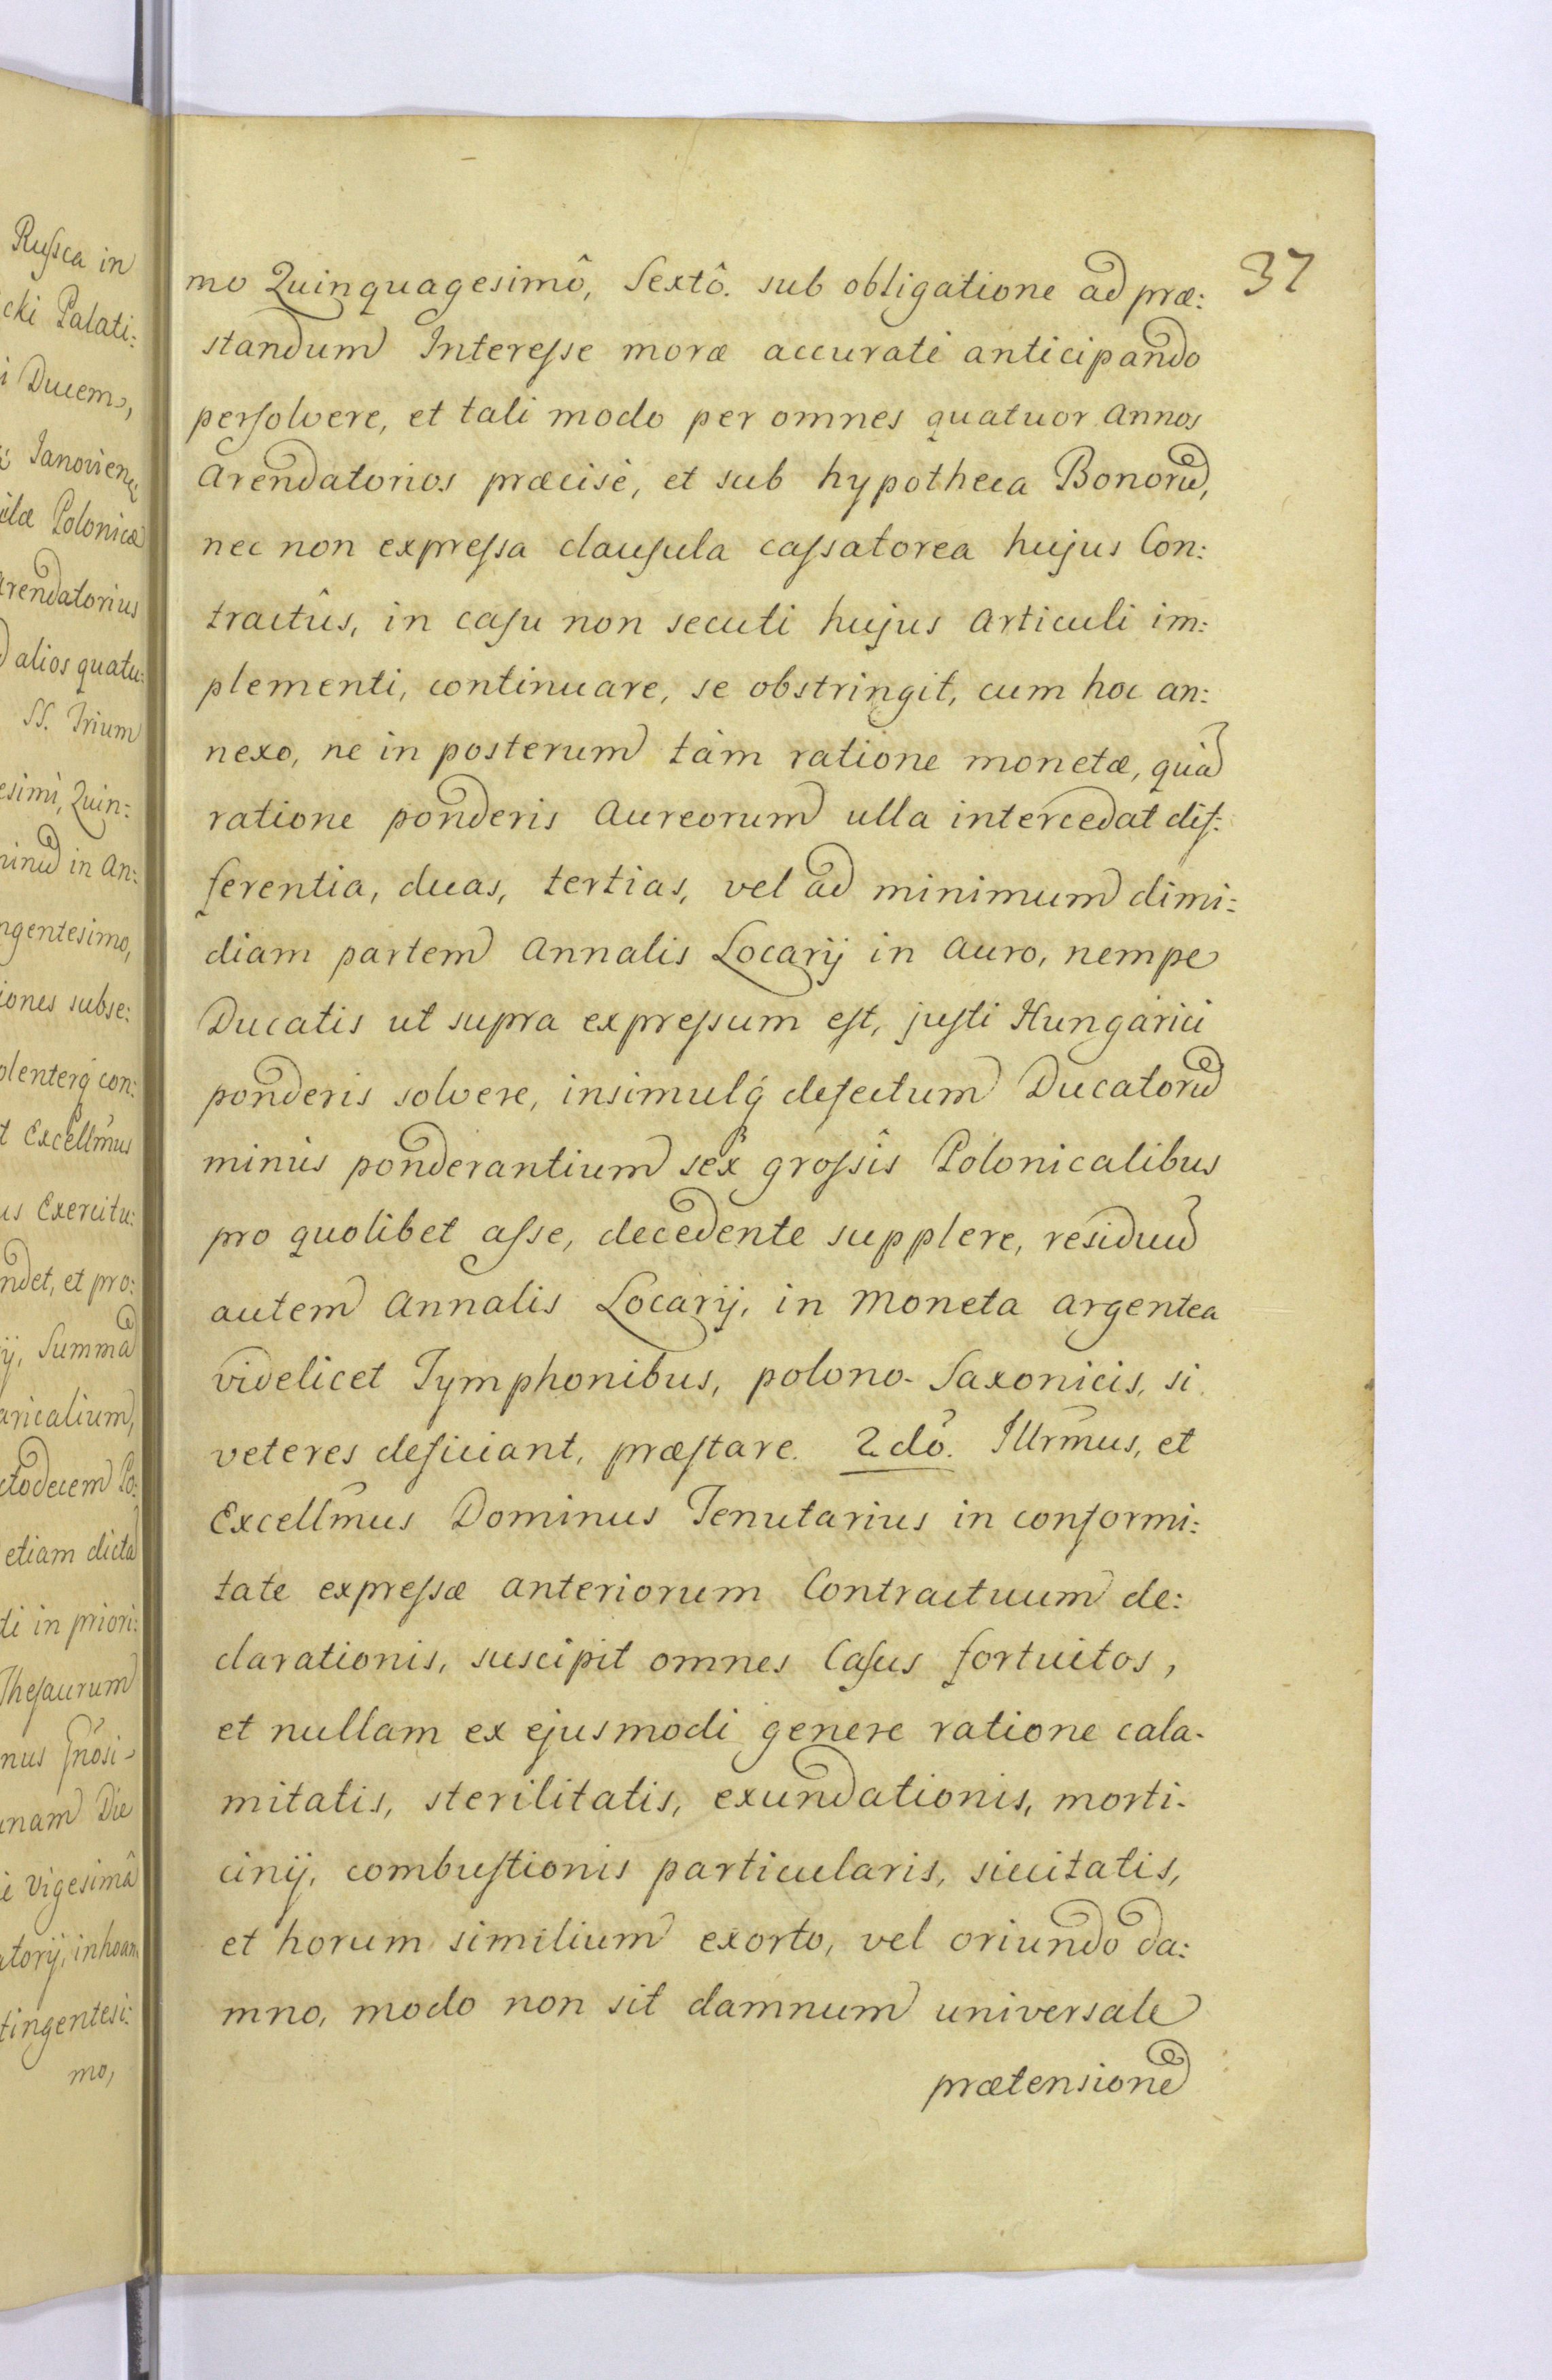 Russca in
cki Palati:
i Ducem,
Janovien
ilæ Polonicæ
arendatorius
alios quatu:
SS. Trium
esimi, Quin:
in An:
ngentesimo,
iones subse:
olenterq́ con:
t Excellm̃us
us Exercitu:
ndet, et pro:
ij, Summã
aricalium,
ctodecem Po:
etiam dicta
ti in priori:
Thesaurum
nus
unam Die
i vigesimâ
atorij, inhoan
tingentesi:
mo,
37
mo Quinquagesimô, Sextô. sub obligatione ad præ:
standum Interesse moræ accuratè anticipando
persolvere, et tali modo per omnes quatuor annos
arendatorios præcisè, et sub hypotheca Bonorũ,
nec non expressa clausula cassatorea hujus Con:
tractûs, in casu non secuti hujus articuli im:
plementi, continuare, se obstringit, cum hoc an:
nexo, ne in posterum tàm ratione monetæ, quã
ratione ponderis aureorum ulla intercedat dif:
ferentia, duas, tertias, vel ad minimum dimi:
diam partem annalis Locarij in auro, nempe
Ducatis ut supra expressum est, justi Hungarici
ponderis solvere, insimulq́ defectum Ducatorũ
minùs ponderantium sex grossis Polonicalibus
pro quolibet asse, decedente supplere, residuũ
autem annalis Locarij, in moneta argentea
videlicet Tymphonibus, polono-Saxonicis, si
veteres deficiant, præstare. 2dò. Illrm̃us, et
Excellm̃us Dominus Tenutarius in conformi:
tate expressæ anteriorum Contractuum de:
clarationis, suscipit omnes Casus fortuitos,
et nullam ex ejusmodi genere ratione cala-
mitatis, sterilitatis, exundationis, morti-
cinij, combustionis particularis, siccitatis,
et horum similium exorto, vel oriundo da:
mno, modo non sit damnum universale
prætensionẽ